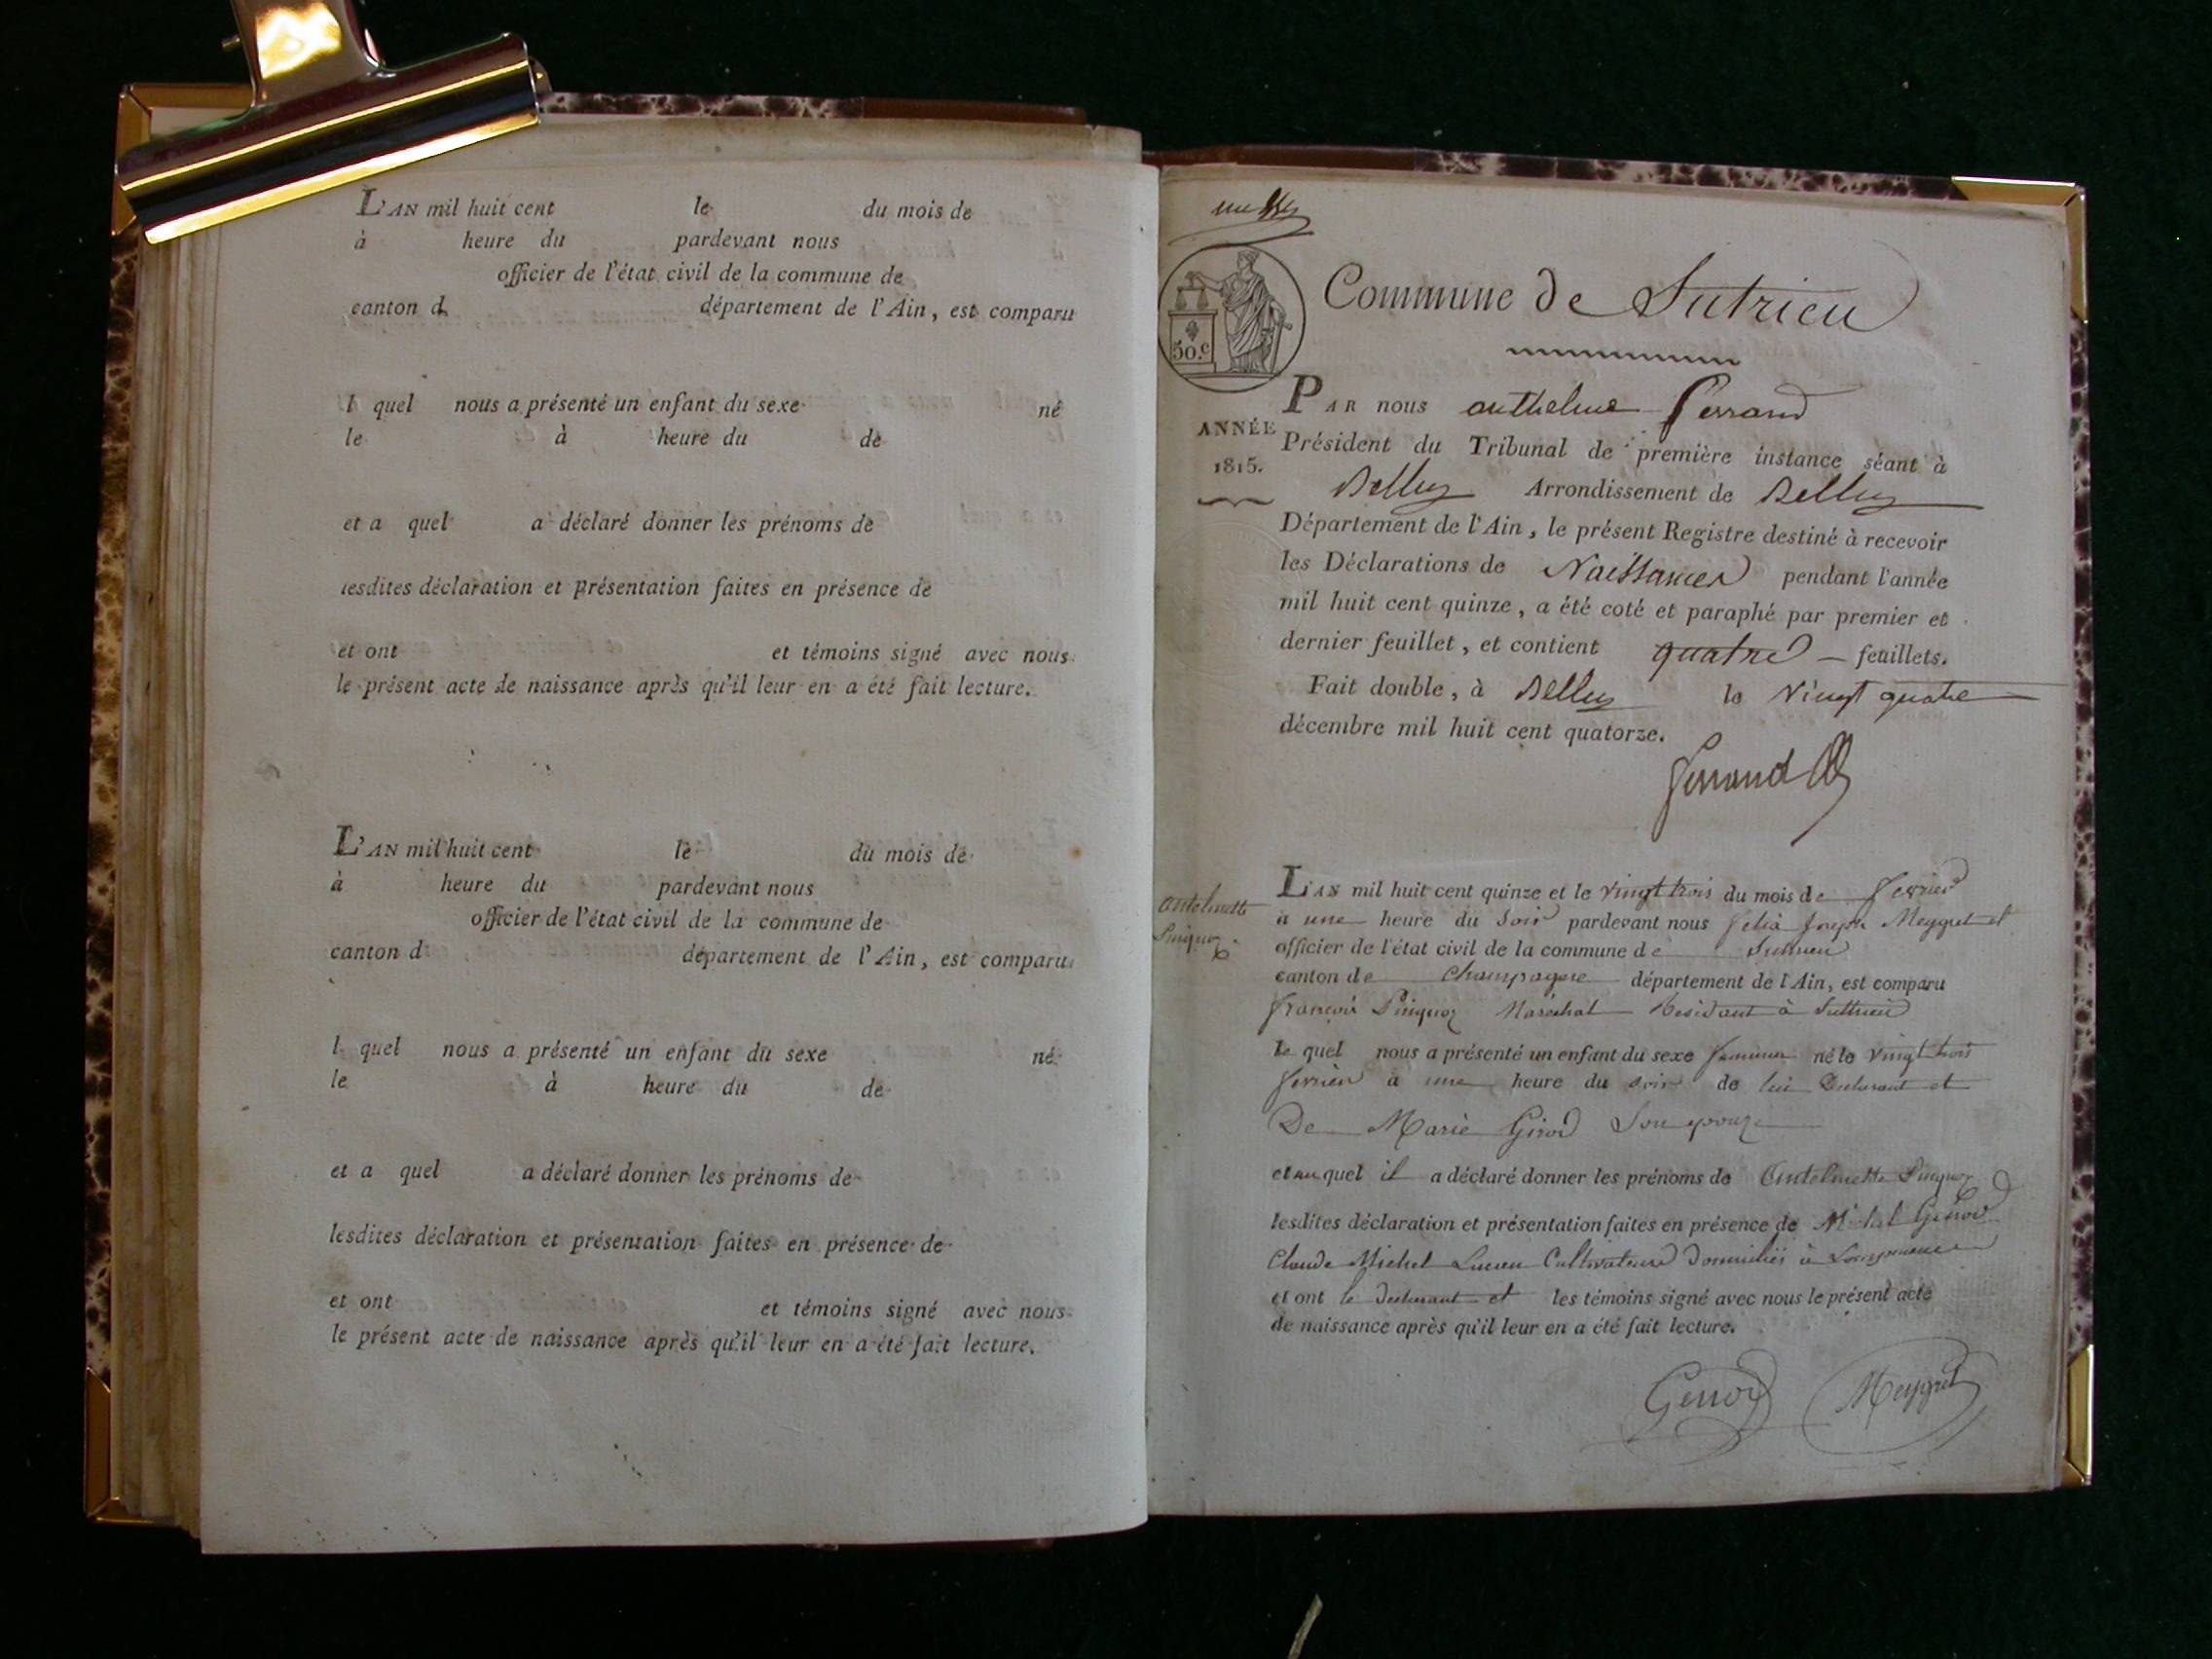 L'AN mil huit cent le du mois de
à heure du pardevant nous
officier de l'état civil de la commune de
canton d département de l'Ain, est comparu
l quel nous a présenté un enfant du sexe né
le à heure du de
et a quel a déclaré donner les prénoms de
lesdites déclaration et présentation faites en présence de
et ont et témoins signé avec nous
le présent acte de naissance après qu'il leur en a été fait lecture.
L'AN mil huit cent le du mois de
à heure du pardevant nous
officier de l'état civil de la commune de
canton d département de l'Ain, est comparu
l quel nous a présenté un enfant du sexe né
le à heure du de
et a quel a déclaré donner les prénoms de
lesdites déclaration et présentation faites en présence de
et ont et témoins signé avec nous
le présent acte de naissance après qu'il leur en a été fait lecture.
Commune de Sutrieu
50.c
PAR nous anthelme Ferrand
ANNÉE
1815.
Président du Tribunal de première instance séant à
Belley Arrondissement de Belley
Département de l'Ain, le présent Registre destiné à recevoir
les Déclarations de Naissances pendant l'année
mil huit cent quinze, a été coté et paraphé par premier et
dernier feuillet, et contient quatre feuillets.
Fait double, à Belley le vingt quatre
décembre mil huit cent quatorze.
Ferrand
Antelmette
Pinguoz
L'AN mil huit cent quinze et le vingt trois du mois de fevrier
a une heure du soir pardevant nous felix Joseph Meygret
officier de l'état civil de la commune de Sutrieu
canton de Champagne département de l'Ain, est comparu
françois Pinguoz Maréchal Residant à Suttrieu
le quel nous a présenté un enfant du sexe feminin né le vingt trois
fevrier a une heure du soir de lui Declarant et
De Marie Girod Son epouze
et au quel il a déclaré donner les prénoms de Antelmette Pinguoz
lesdites déclaration et présentation faites en présence de Michel Genod
Claude Michel Cultivateurs domiciliés à
et ont le declarant et les témoins signé avec nous le présent acte
de naissance après qu'il leur en a été fait lecture.
Genod Meygret